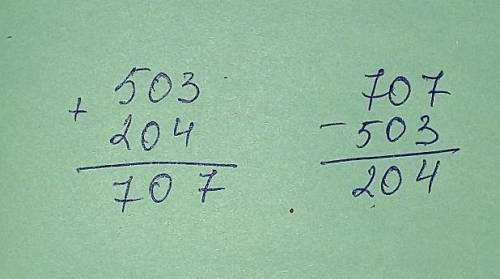 503
+
204
707
707
- 503
204